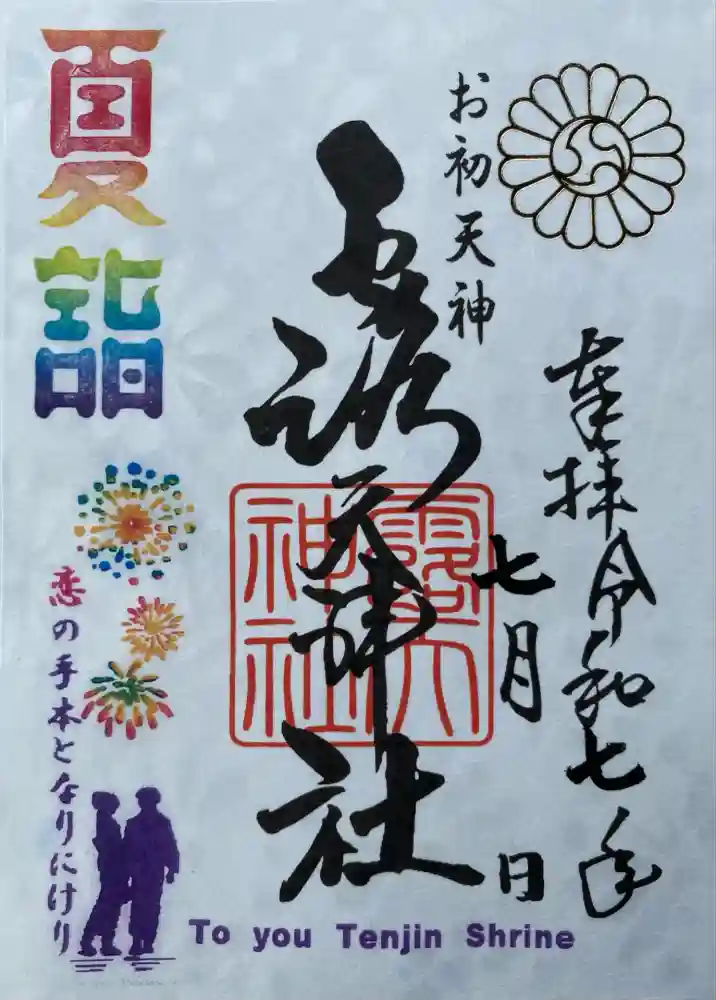 奉拝令和七年
七月 日
お初天神
露天神社
露天神社
夏詣
恋の手本となりにけり
To you Tenjin Shrine